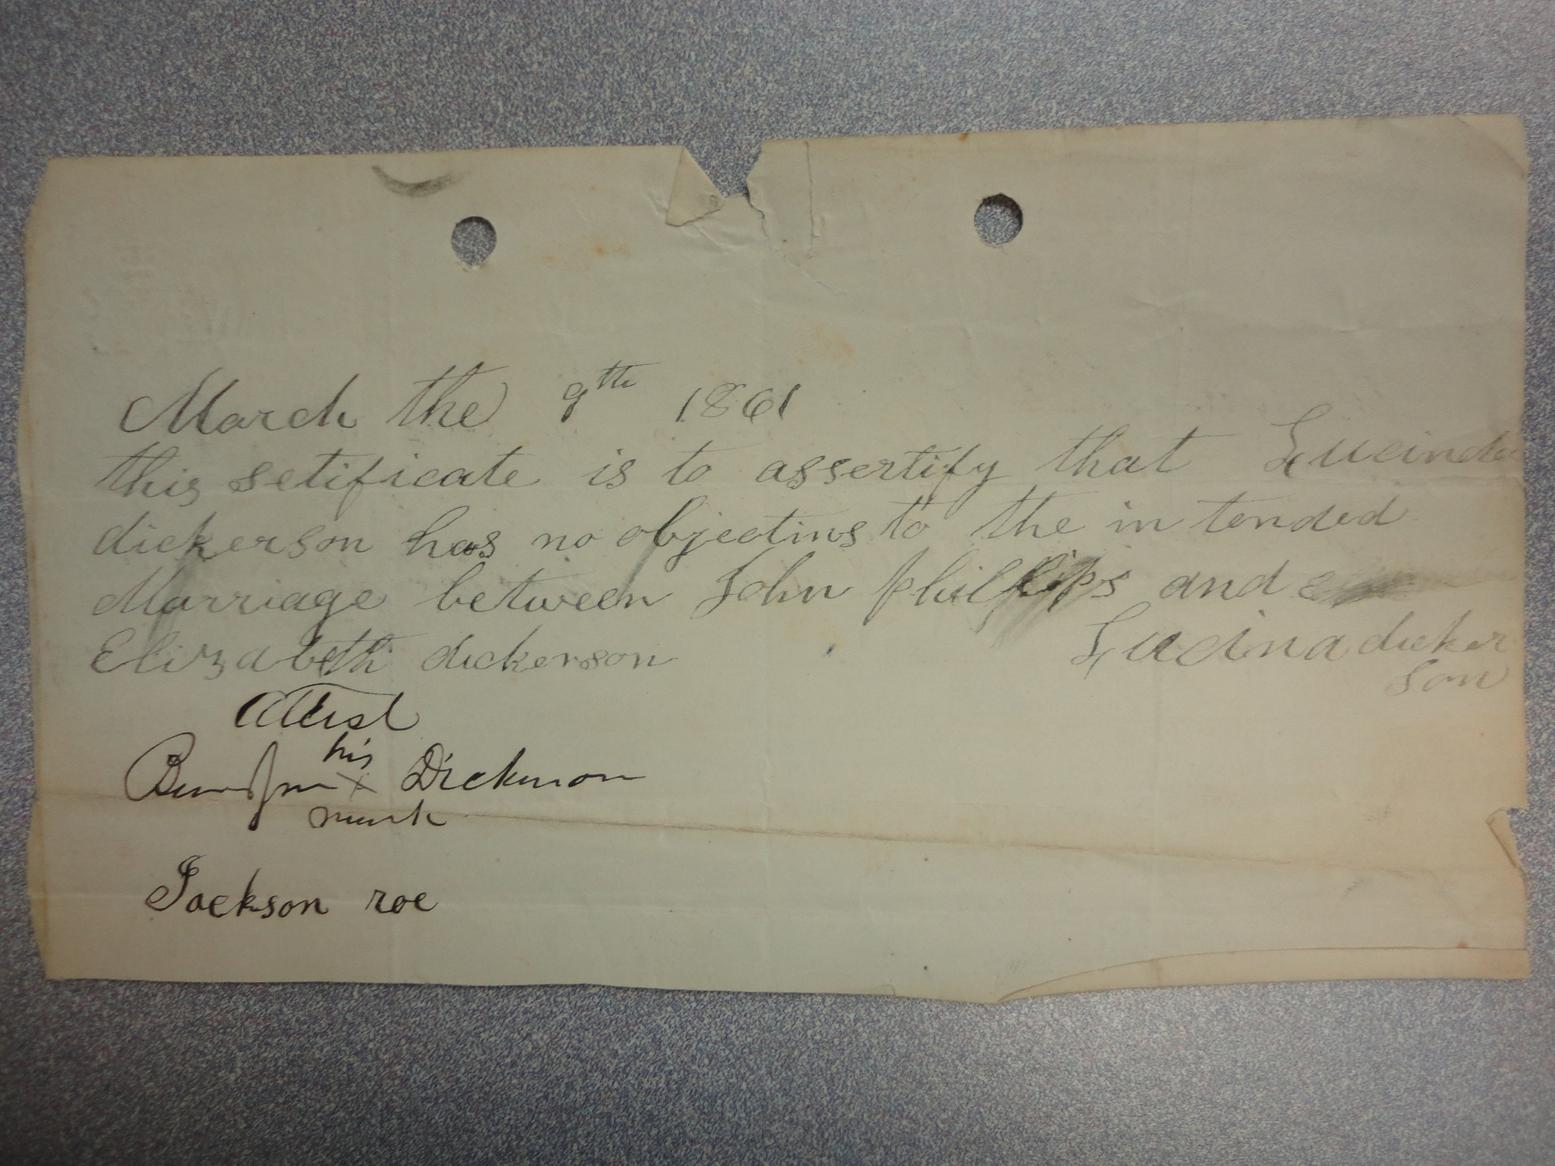 March the 9th 1861
this setificate is to assertify that Lucinda
dickerson has no objectins to the in tended
Marriage between John phillips and
Elizabeth dickerson Lucina dicker
son
Attest
his
Benjm x Dickerson
mark
Jackson roe